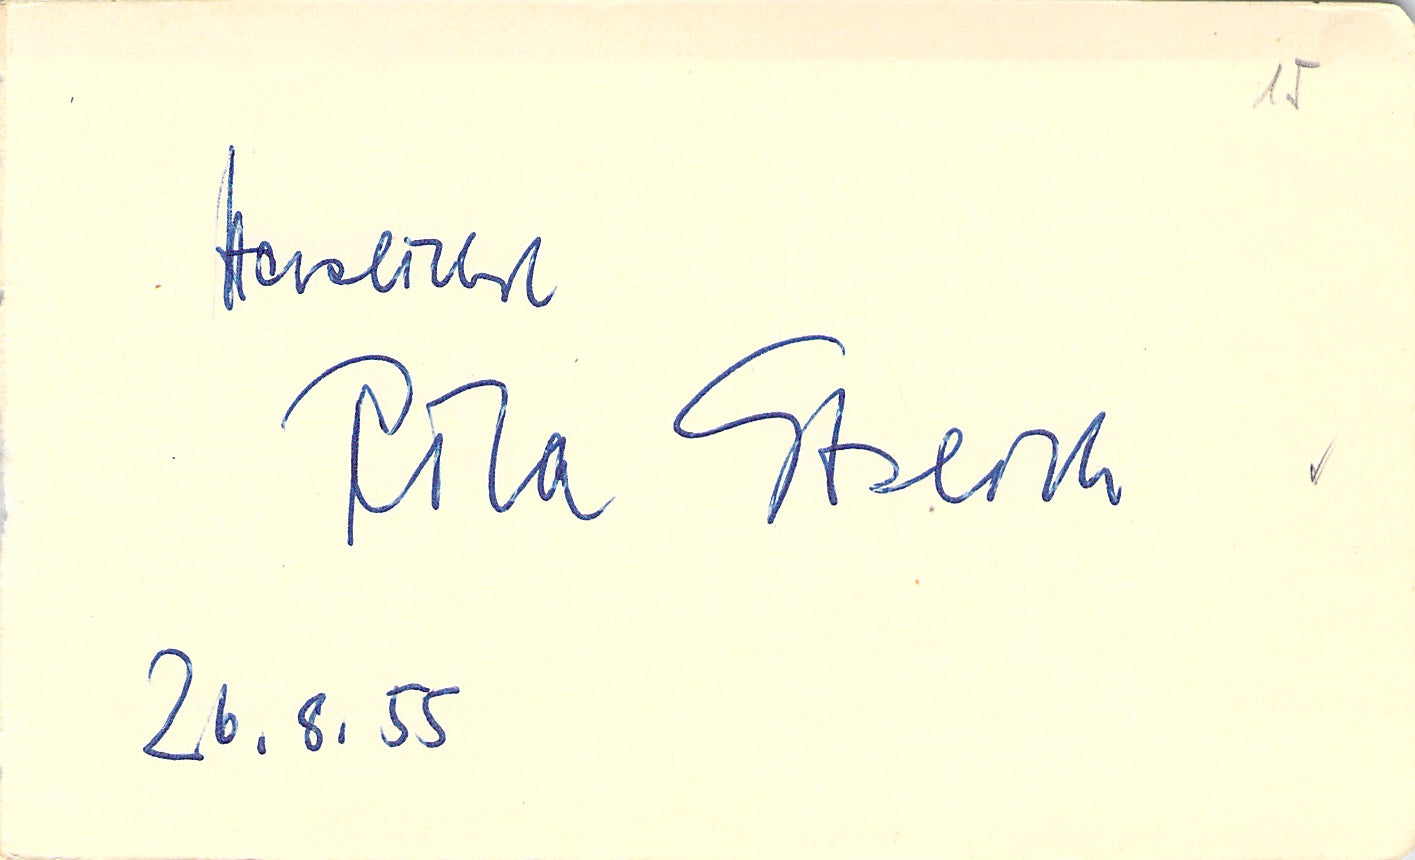 15
Herzlichst
Rita Streich
26.8.55